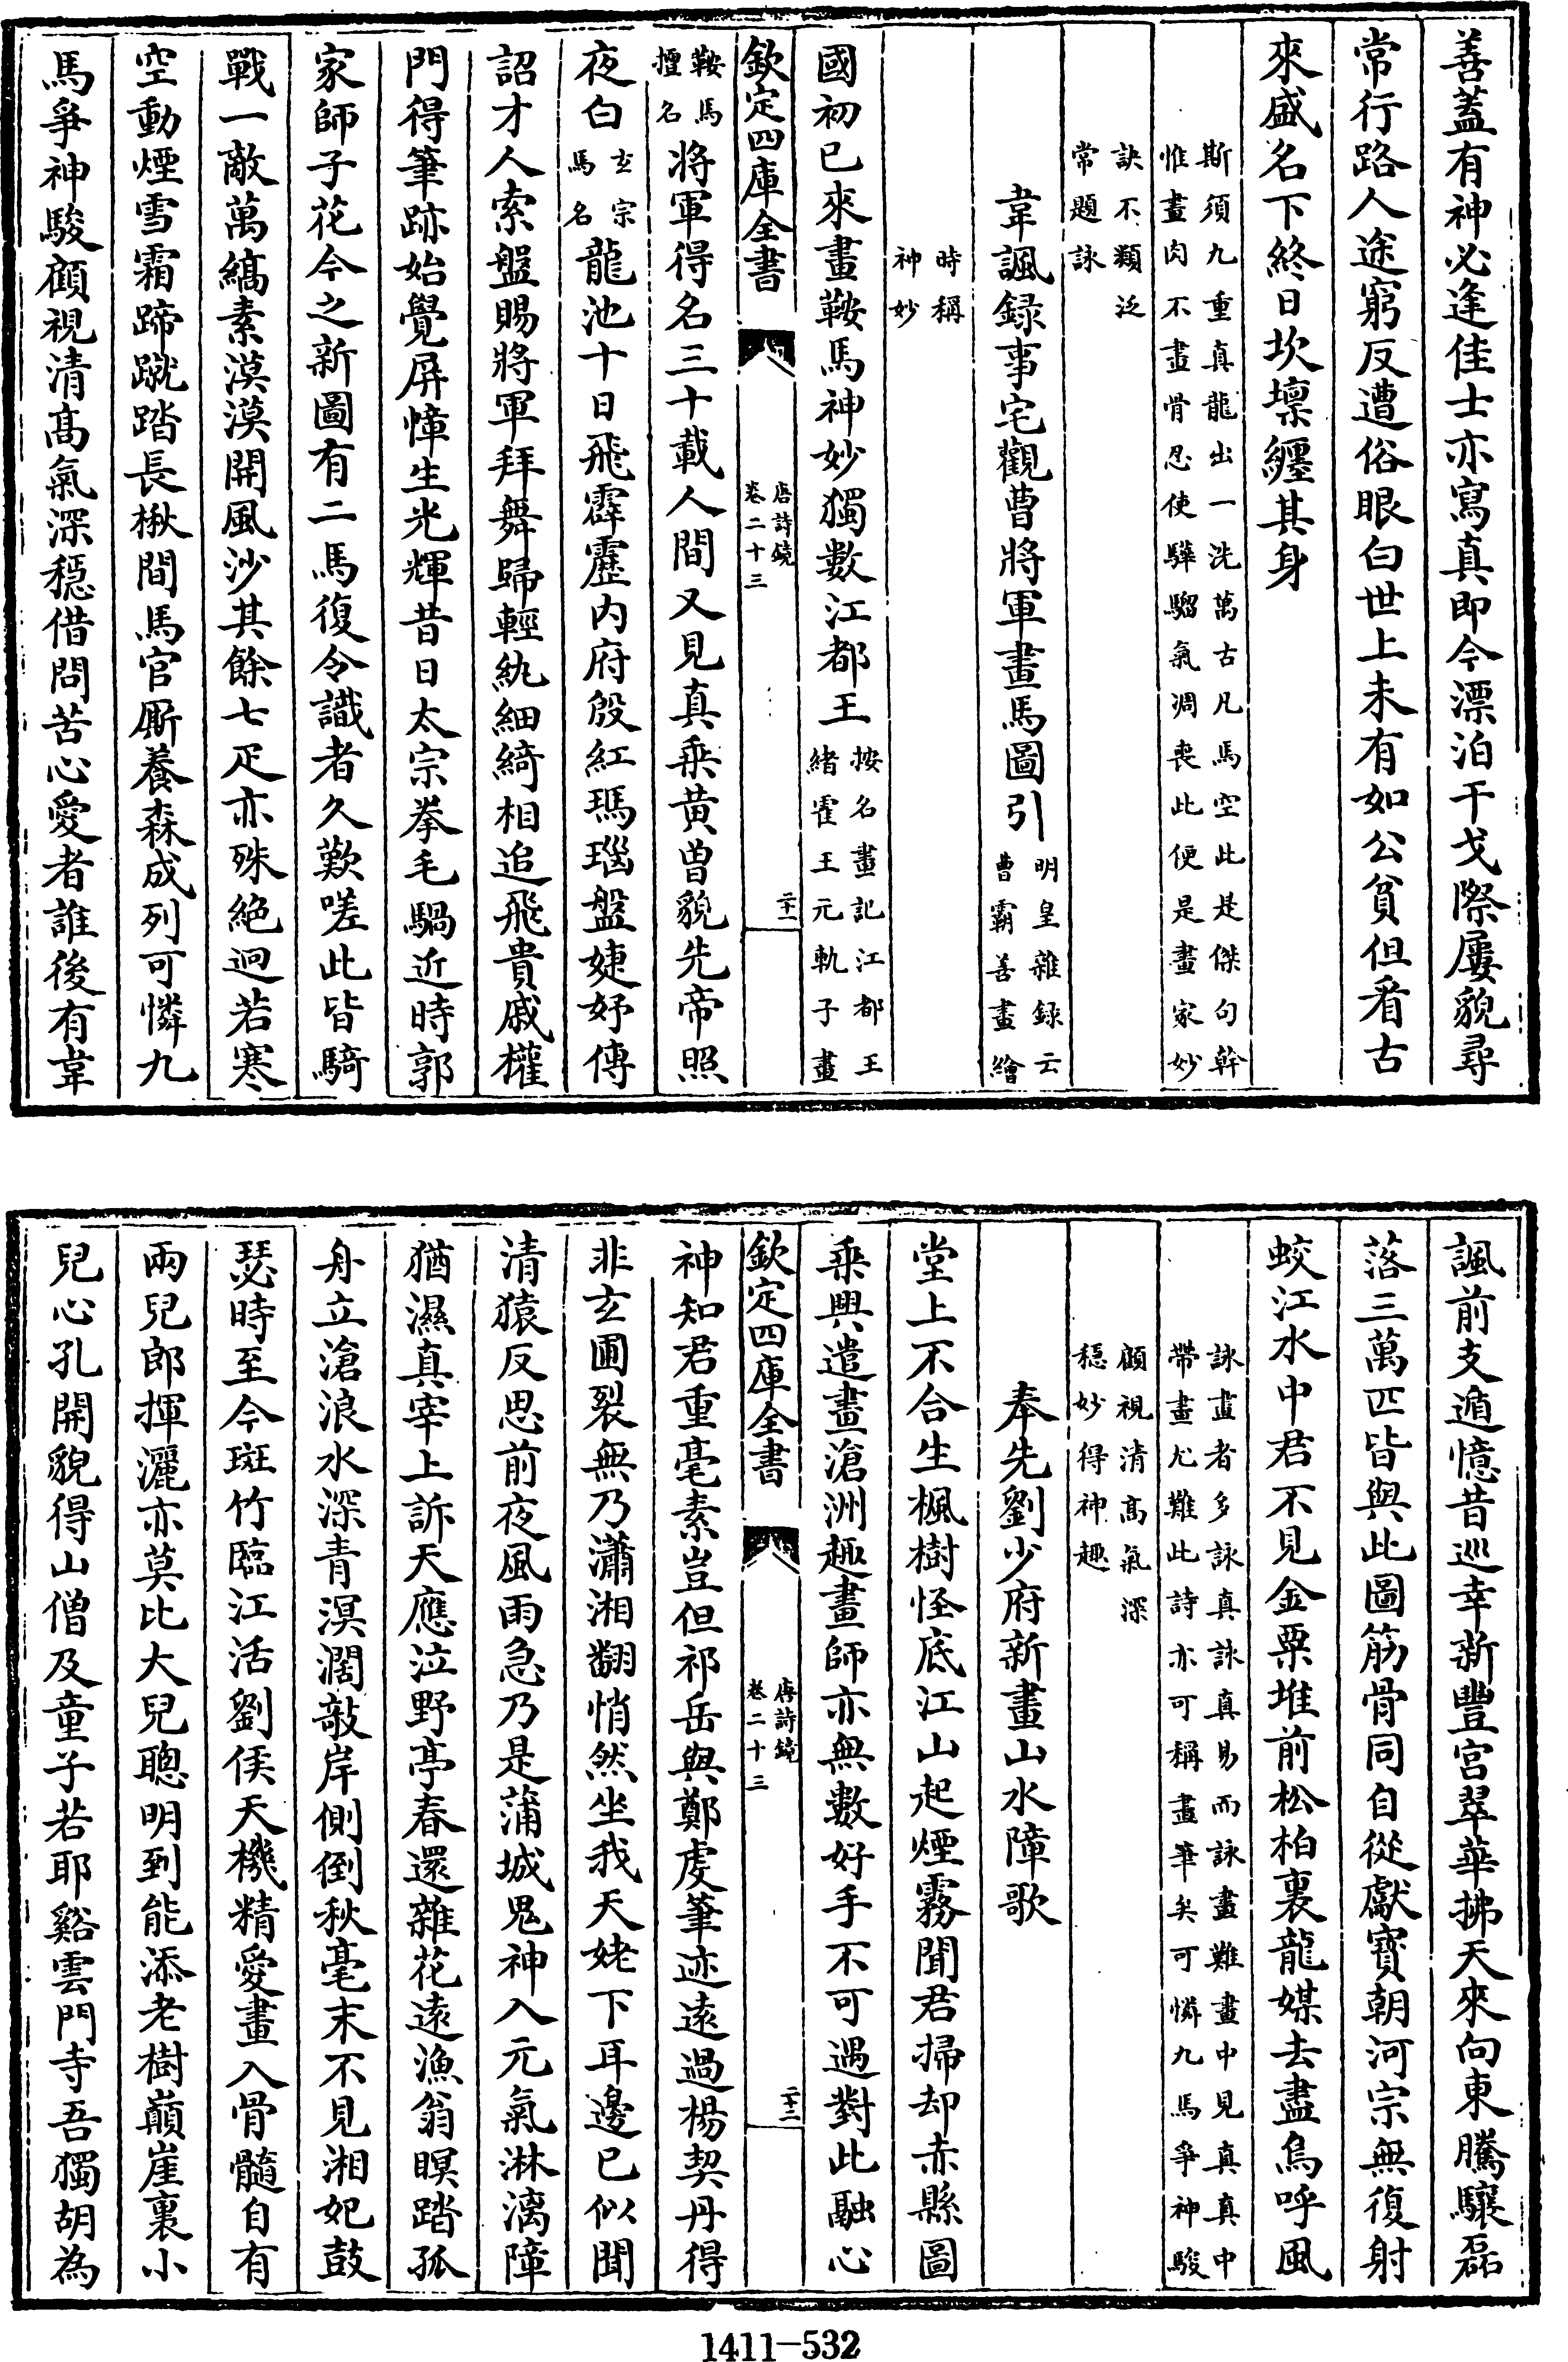 善蓋有神必逢佳士亦寫真即今漂泊干戈際屢貌尋
常行路人途窮反遭俗眼白世上未有如公貧但看古
來盛名下終日坎壈纏其身
斯須九重真龍出一洗萬古凡馬空此是傑句幹
惟畫肉不畫骨忍使驊騮氣凋喪此便是畫家妙
訣不類泛
常題詠
韋諷録事宅觀曹將軍畫馬圖引
明皇雜録云
曹霸善畫繪
時稱
神妙
國初已來畫鞍馬神妙獨數江都王
按名畫記江都王
緒霍王元軌子畫
欽定四庫全書
唐詩鏡
卷二十三
二十一
鞍馬
擅名
將軍得名三十載人間又見真乗黄曽貌先帝照
夜白
玄宗
馬名
龍池十日飛霹靂内府殷紅瑪瑙盤婕妤傳
詔才人索盤賜將軍拜舞歸輕紈細綺相追飛貴戚權
門得筆跡始覺屏幛生光輝昔日太宗拳毛騧近時郭
家師子花今之新圖有二馬復令識者久歎嗟此皆騎
戰一敵萬縞素漠漠開風沙其餘七疋亦殊絶迥若寒
空動煙雪霜蹄蹴踏長楸間馬官厮養森成列可憐九
馬爭神駿顧視清髙氣深穩借問苦心愛者誰後有韋
諷前支遁憶昔巡幸新豐宫翠華拂天來向東騰驤磊
落三萬匹皆與此圖筋骨同自從獻寳朝河宗無復射
蛟江水中君不見金粟堆前松柏裏龍媒去盡鳥呼風
詠畫者多詠真詠真易而詠畫難畫中見真真中
帶畫尤難此詩亦可稱畫筆矣可憐九馬爭神駿
顧視清髙氣深
穩妙得神趣
奉先劉少府新畫山水障歌
堂上不合生楓樹怪底江山起煙霧聞君掃却赤縣圖
乗興遣畫滄洲趣畫師亦無數好手不可遇對此融心
欽定四庫全書
唐詩鏡
卷二十三
二十二
神知君重毫素豈但祁岳與鄭虔筆迹逺過楊契丹得
非玄圃裂無乃瀟湘翻悄然坐我天姥下耳邊已似聞
清猿反思前夜風雨急乃是蒲城鬼神入元氣淋漓障
猶濕真宰上訴天應泣野亭春還雜花逺漁翁暝踏孤
舟立滄浪水深青溟濶敧岸側倒秋毫末不見湘妃鼓
瑟時至今斑竹臨江活劉侯天機精愛畫入骨髓自有
兩兒郎揮灑亦莫比大兒聰明到能添老樹巔崖裏小
兒心孔開貌得山僧及童子若耶谿雲門寺吾獨胡為
1411-532